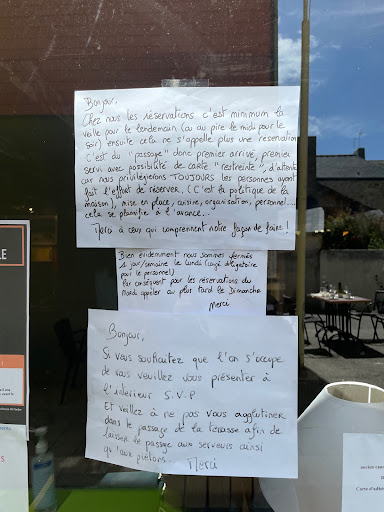 Bonjour,
Chez nous les réservations c'est minimum la
veille pour le lendemain (ou au pire le midi pour le
soir) ensuite cela ne s'appelle plus une reservation
C'est du "passage" donc premier arrivé, premier
servi avec possibilité de carte "restreinte", d'attente
car nous privilégierons TOUJOURS les personnes ayant
fait l'effort de réserver, (C'est la politique de la
maison), mise en place, cuisine, organisation, personnel....
cela se planifie à l'avance...
Merci à ceux qui comprennent notre façon de faire !
Bien évidemment nous sommes fermés
1 jour/semaine le lundi (congé obligatoire
pour le personnel)
Par conséquent pour les réservations du
Mardi appeler au plus tard le Dimanche
Merci
Bonjour,
Si vous souhaitez que l'on s'occupe
de vous veuillez vous présenter à
l'intérieur S.V.P
Et veillez à ne pas vous agglutiner
dans le passage de la terrasse afin de
laisser le passage aux serveurs ainsi
qu'aux piétons... Merci